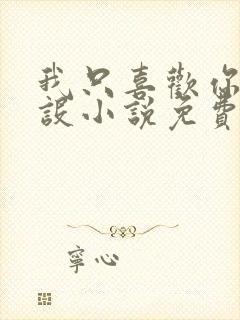 我只喜歡你
設小說免費
寧心